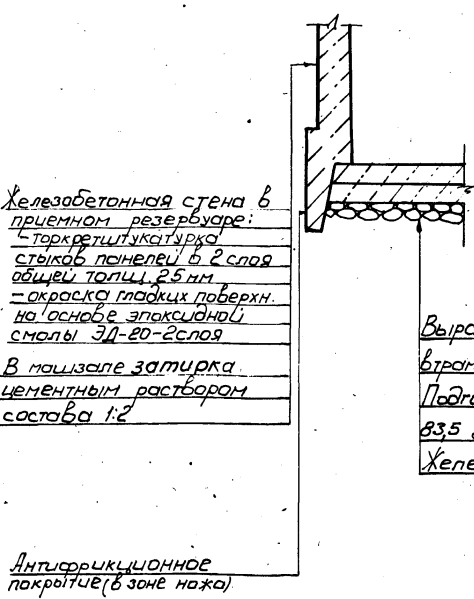 Железобетонная стена в
приемном резервуаре:
-торкретштукатурка
стыков панелей в 2 слоя
общей толщ. 25 мм
-окраска гладких поверхн.
на основе эпоксидной
смолы ЭД-20-2слоя
В машзале затирка
цементным раствором
состава 1:2
Антифрикционное
покрытие (в зоне ножа)
Выра
втрам
Подги
83,5
Желе